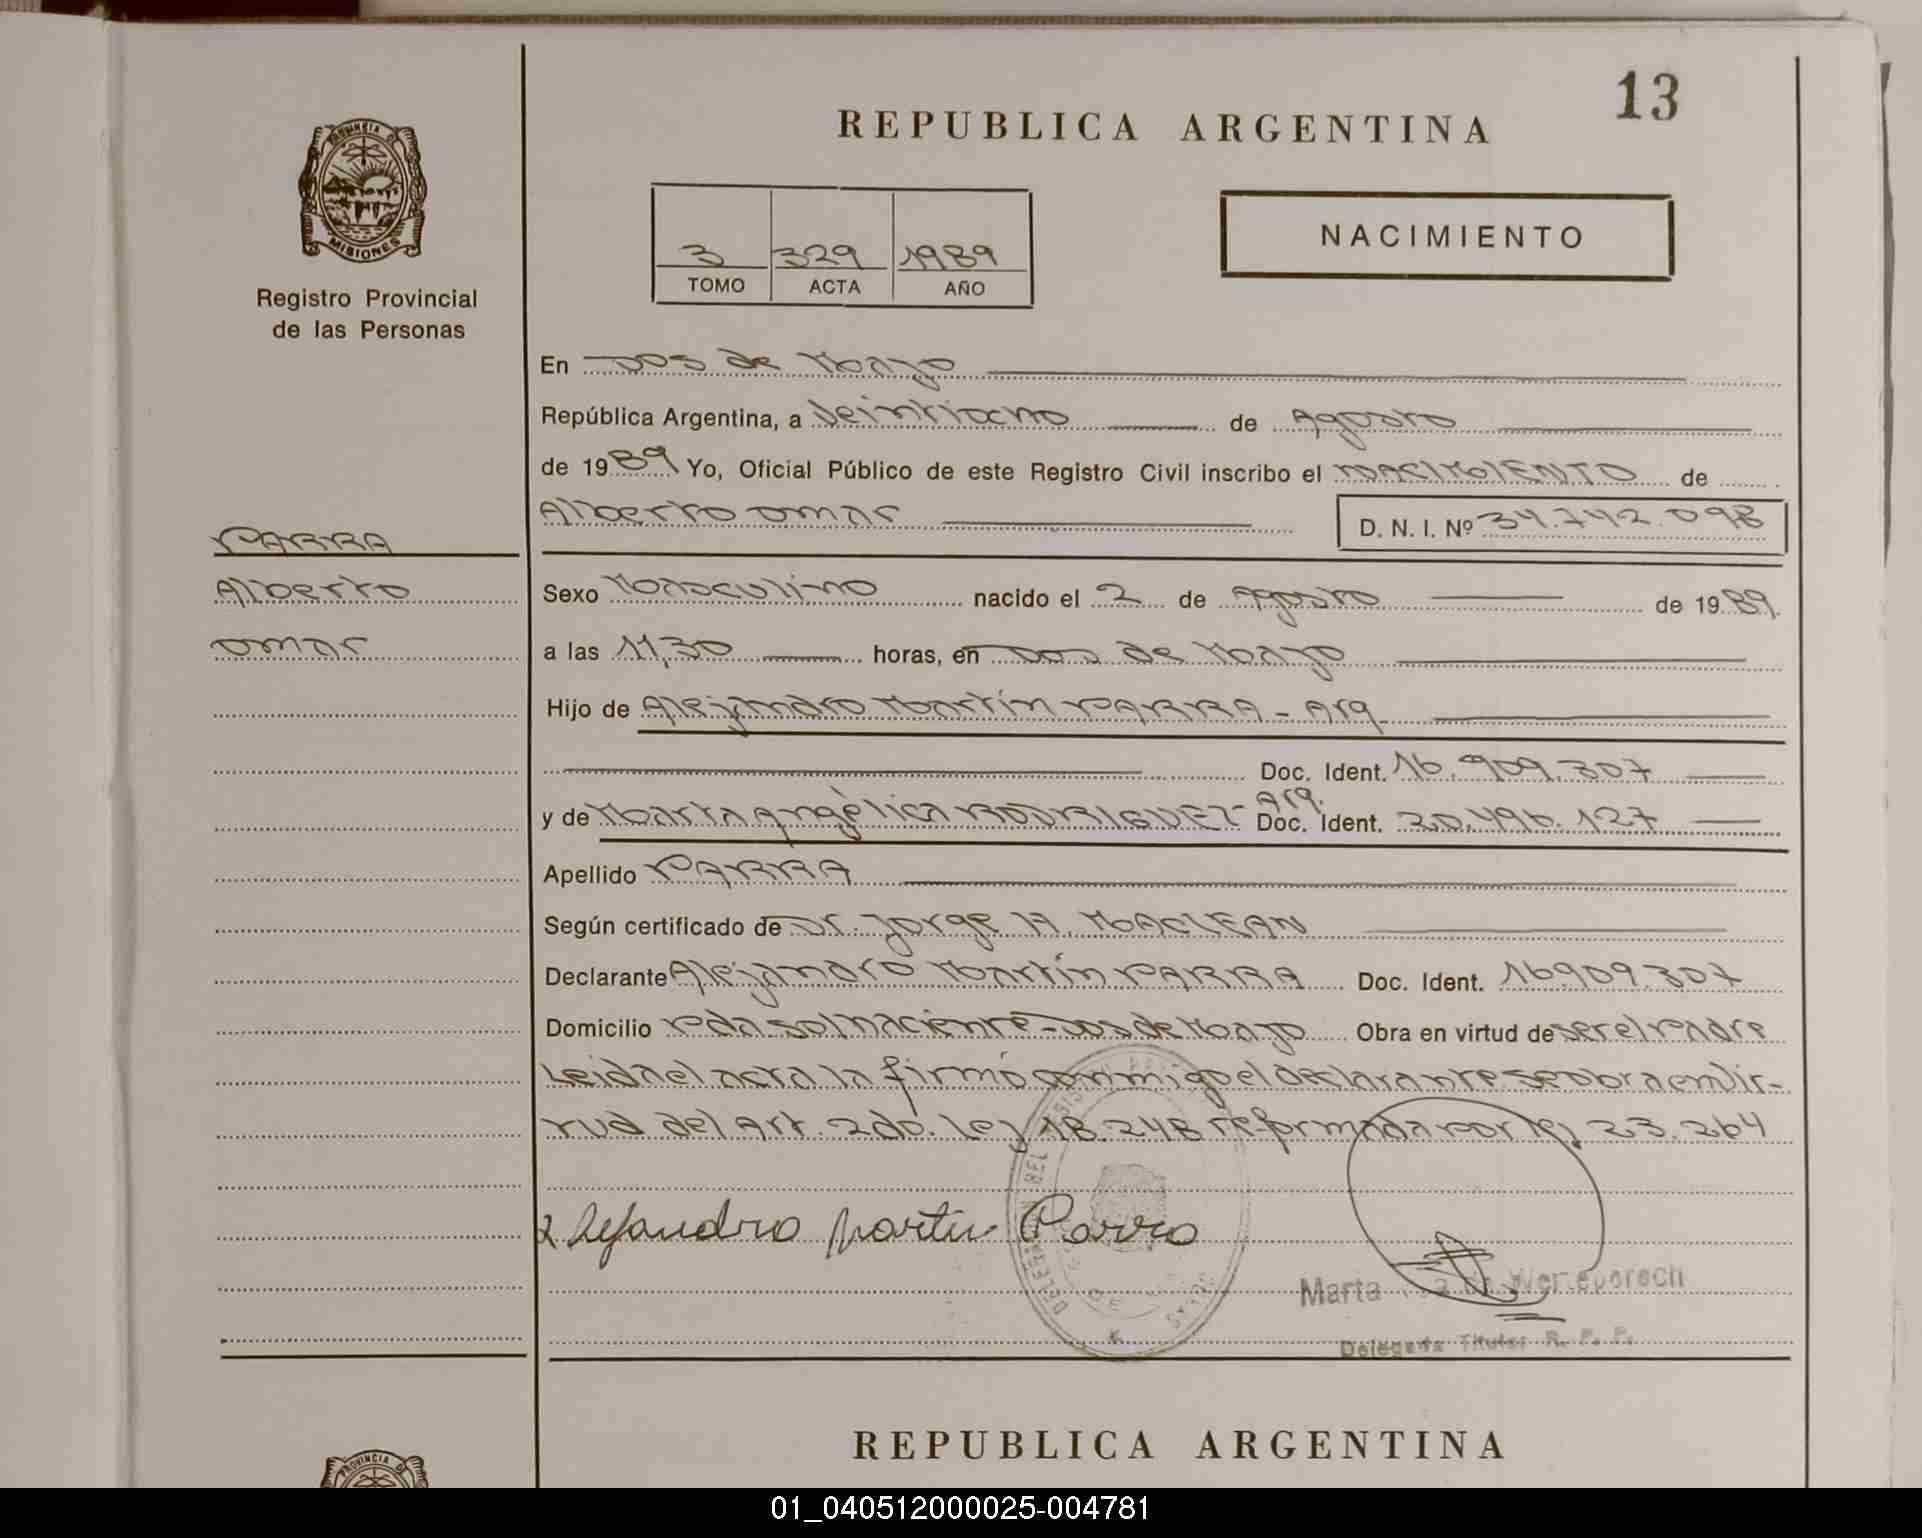 13
REPUBLICA ARGENTINA
PROVINCIA D
MISIONES
Registro Provincial
de las Personas
3 329 1989
TOMO ACTA AÑO
NACIMIENTO
En Dos de Mayo
República Argentina, a Veintiocho de Agosto
de 1989 Yo, Oficial Público de este Registro Civil inscribo el NACIMIENTO de
Alberto Omar D. N. I. Nº 34.742.098
PARRA
Alberto
Omar
Sexo Masculino nacido el 2 de Agosto de 1989.
a las 11,30 horas, en Dos de Mayo
Hijo de Alejandro Martín PARRA - Arg.
Doc. Ident. 16.909.307
y de Marta Angèlica RODRIGUEZ - Arg. Doc. Ident. 20.496.127
Apellido PARRA
Según certificado de Dr. Jorge H. MACLEAN
Declarante Alejandro Martín PARRA Doc. Ident. 16909.307
Domicilio Pcda. sol naciente - Dos de Mayo Obra en virtud de ser el Padre
Leida el acta la firmó conmigo el declarante se obra en vir-
tud del Art. 2do. Ley 18.248 reformada por ley 23.264
Alejandro Martin Parra
Marta de
Delegada Titular R. P. P.
REPUBLICA ARGENTINA
PROVINCIA D
01_040512000025-004781